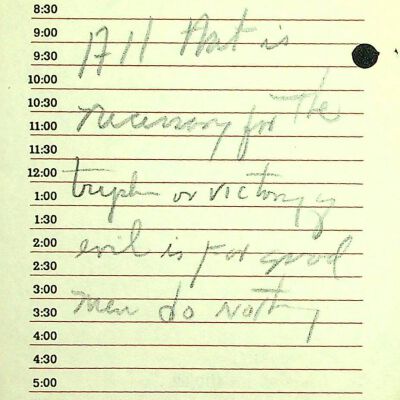 8:30
9:00
9:30 All that is
10:00
10:30 necessary for The
11:00
11:30
12:00 or victory of
1:00
1:30
2:00 evil is for good
2:30
3:00 men do
3:30
4:00
4:30
5:00